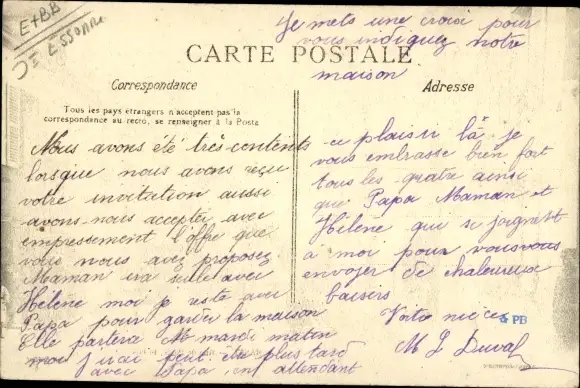 E+BB
ESSONNE
Je mets une croix pour
vous indiquez notre
maison
CARTE POSTALE
Correspondance
Adresse
Tous les pays étrangers n'acceptent pas la
correspondance au recto, se renseigner à la Poste
Nous avons été très contents
lorsque nous avons reçu
votre invitation aussi
avons-nous accepter avec
empressement l'offre que
vous nous avez proposez
Maman ira seule avec
Hélène moi je reste avec
Papa pour garder la maison
Elle partira mardi matin
moi j'irai peut être plus tard
avec Papa en attendant
ce plaisir là je
vous embrasse bien fort
tous les quatre ainsi
que Papa Maman et
Hélène qui se joignent
à moi pour vous
envoyer de chaleureux
baisers
Votre nièce
PB
M L Duval